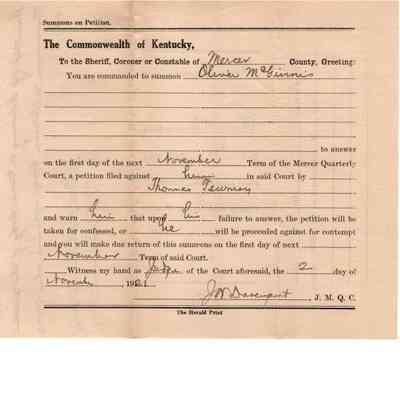 Summons on Petition.
The Commonwealth of Kentucky,
To the Sheriff, Coroner or Constable of Mercer County, Greeting:
You are commanded to summon Oliver McGinnis
to answer
on the first day of the next November Term of the Mercer Quarterly
Court, a petition filed against him in said Court by
Thomas
and warn him that upon his failure to answer, the petition will be
taken for confessed, or he will be proceeded against for contempt
and you will make due return of this summons on the first day of next
November Term of said Court.
Witness my hand as Judge of the Court aforesaid, the 2 day of
November, 1921.
J W Davenport, J. M. Q. C.
The Herald Print